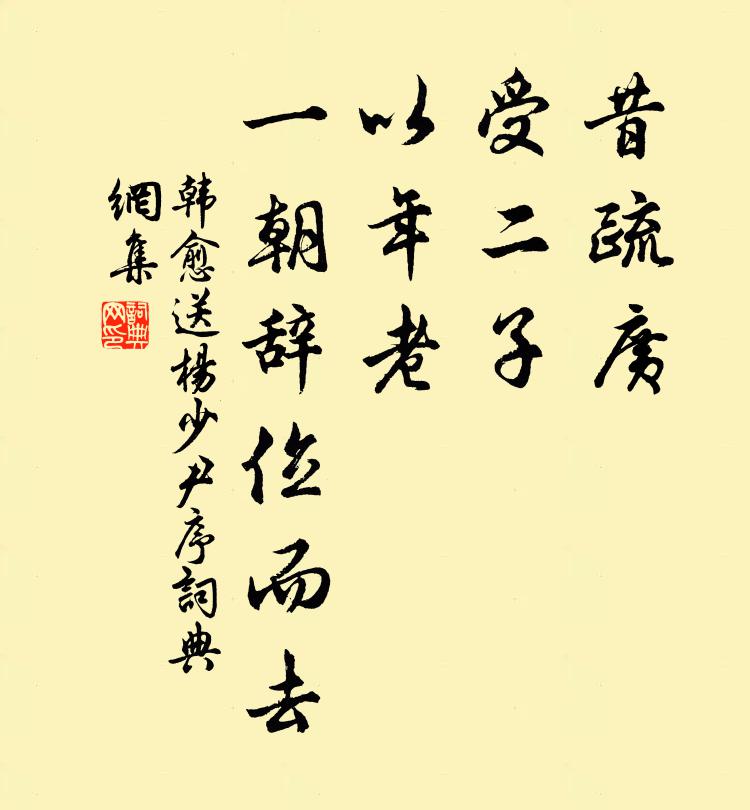 昔疏广
受二子
以年老
一朝辞位而去
韩愈送楊少尹序詞典
網集
詞典
网印